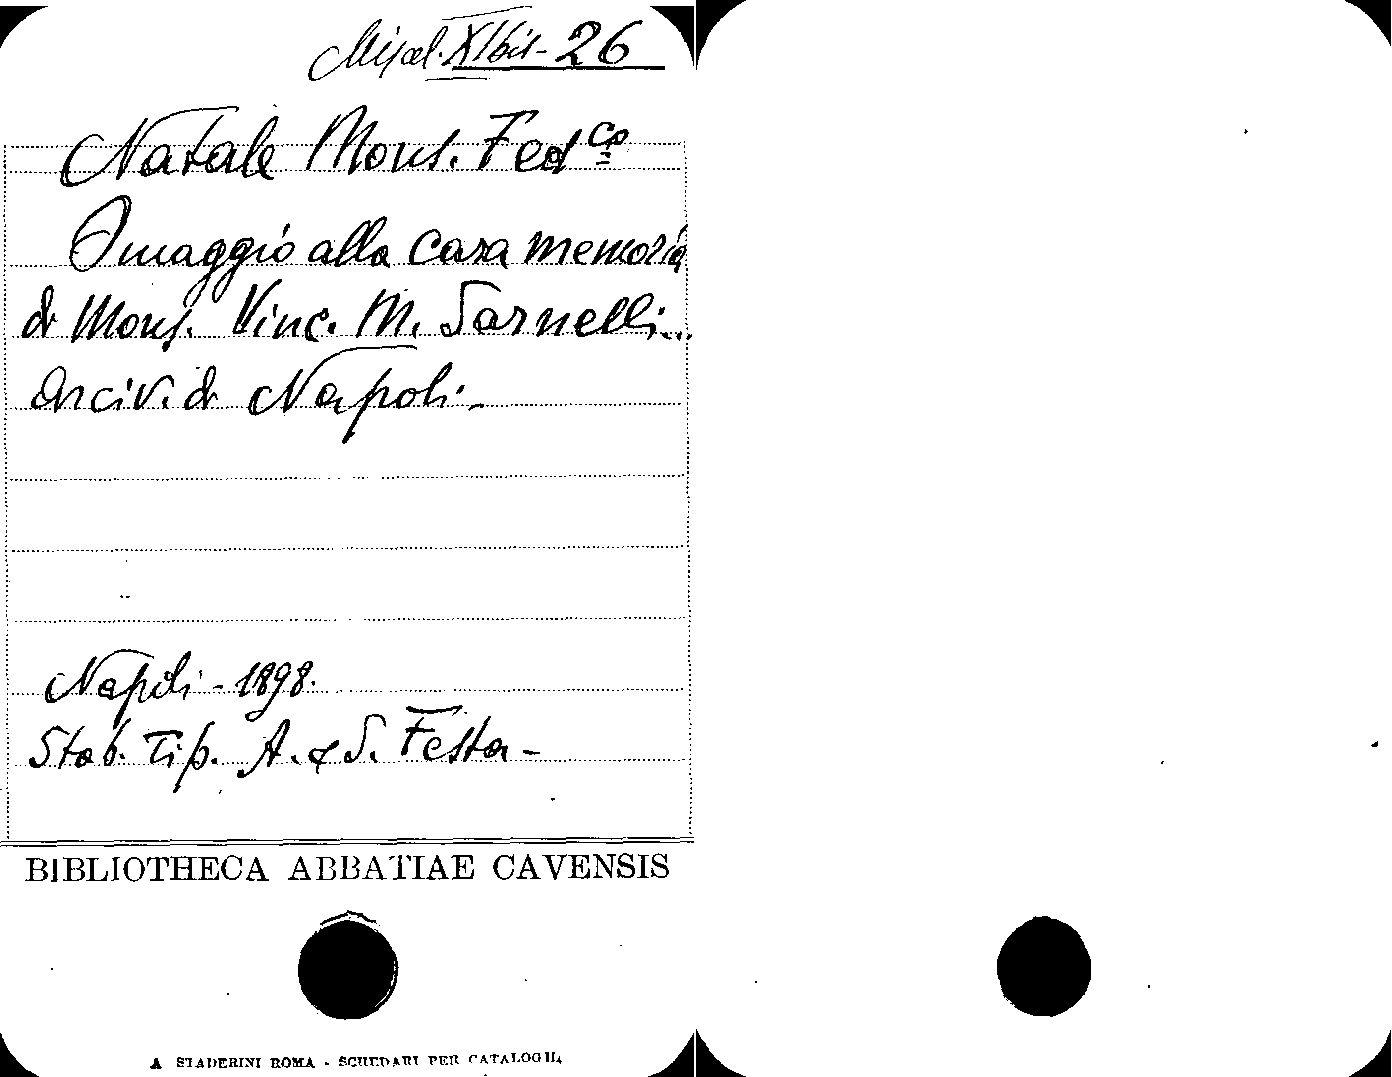 Miscel. XI bis - 26
Natale Mons. Fed.co
Omaggio alla cara memoria
di Mons. Vinc. M. Sarnelli..
Arciv. di Napoli -
Napoli - 1898.
Stab. Tip. A. & S. Festa -
BIBLIOTHECA ABBATIAE CAVENSIS
A STADERINI ROMA - SCHEDARI PER CATALOGHI